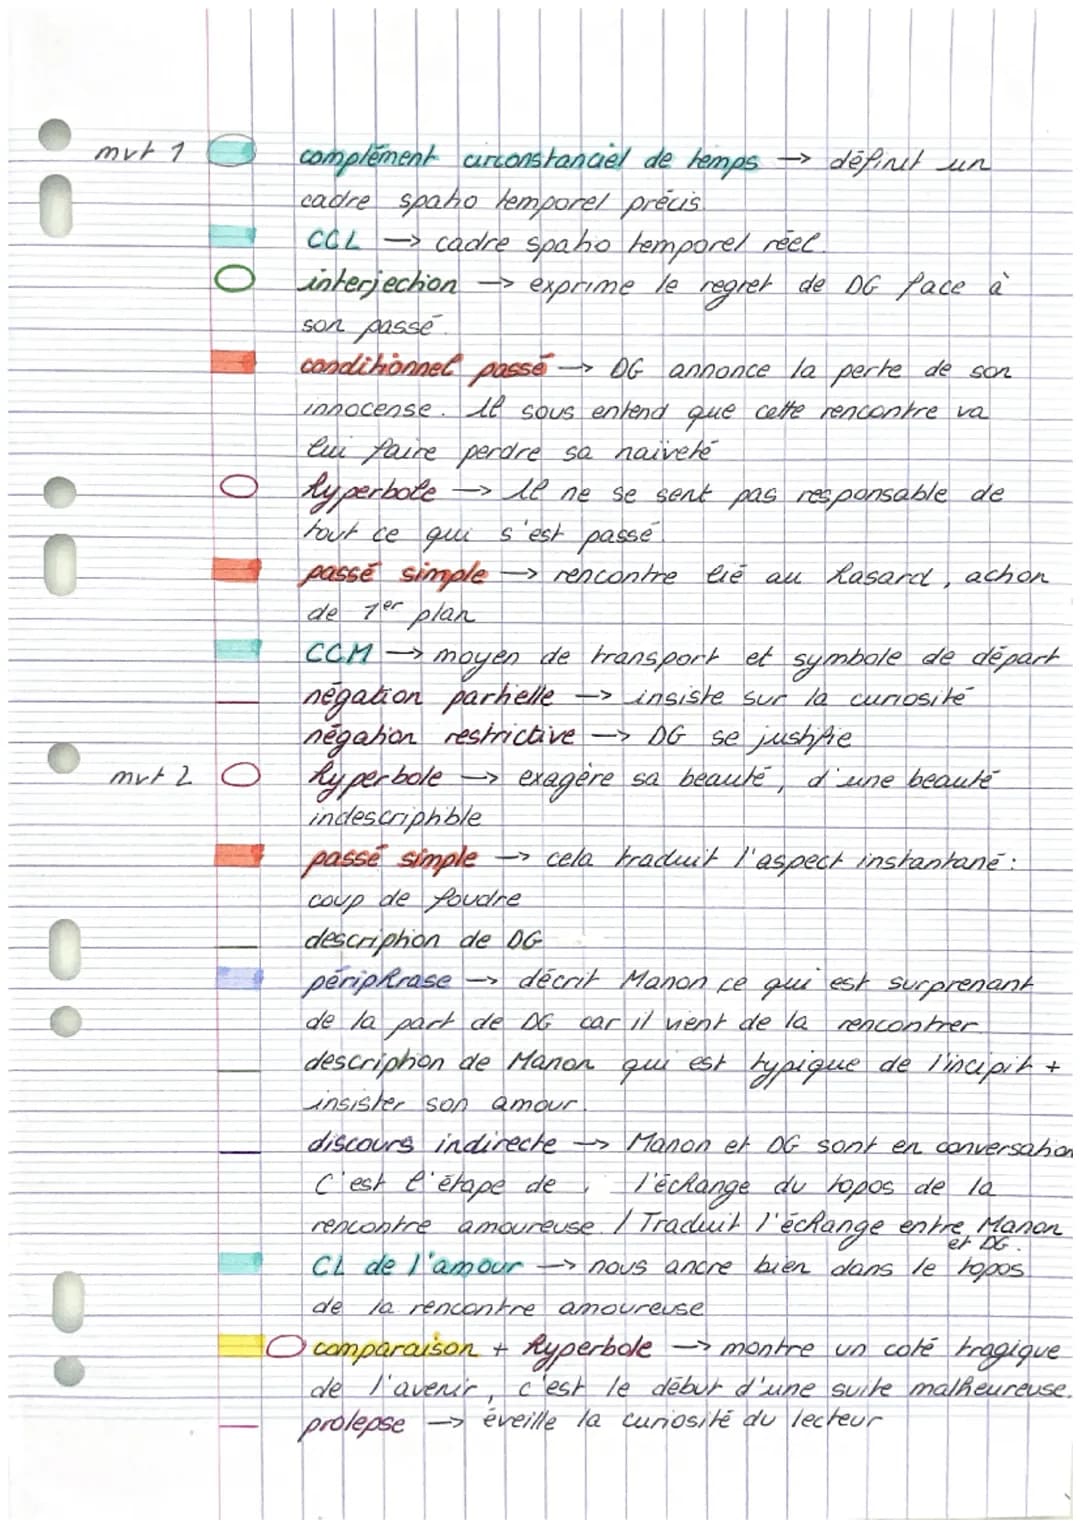 mvt 1 complément circonstanciel de temps → définit un
cadre spatio temporel précis.
CCL → cadre spatio temporel réel.
interjection → exprime le regret de DG face à
son passé.
conditionnel passé → DG annonce la perte de son
innocense. Il sous entend que cette rencontre va
lui faire perdre sa naiveté
hyperbole → Il ne se sent pas responsable de
tout ce qui s'est passé.
passé simple → rencontre lié au hasard, action
de 1er plan
CCM → moyen de transport et symbole de départ
négation partielle → insiste sur la curiosité
négation restrictive → DG se justifie
mvt 2 hyperbole → exagère sa beauté, d'une beauté
indescriptible
passé simple → cela traduit l'aspect instantané :
coup de foudre
description de DG
périphrase → décrit Manon ce qui est surprenant
de la part de DG car il vient de la rencontrer.
description de Manon qui est typique de l'incipit +
insister son amour.
discours indirecte → Manon et DG sont en conversation
C'est l'étape de l'échange du topos de la
rencontre amoureuse. / Traduit l'échange entre Manon
et DG.
CL de l'amour → nous ancre bien dans le topos
de la rencontre amoureuse
comparaison + hyperbole → montre un coté tragique
de l'avenir, c'est le début d'une suite malheureuse.
prolepse → éveille la curiosité du lecteur